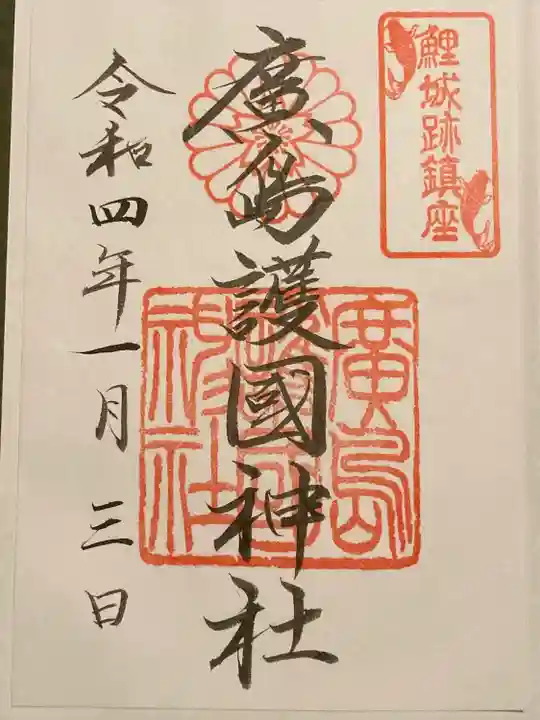 鯉城跡鎮座
廣島護國神社
廣島
護國
神社
令和四年一月三日